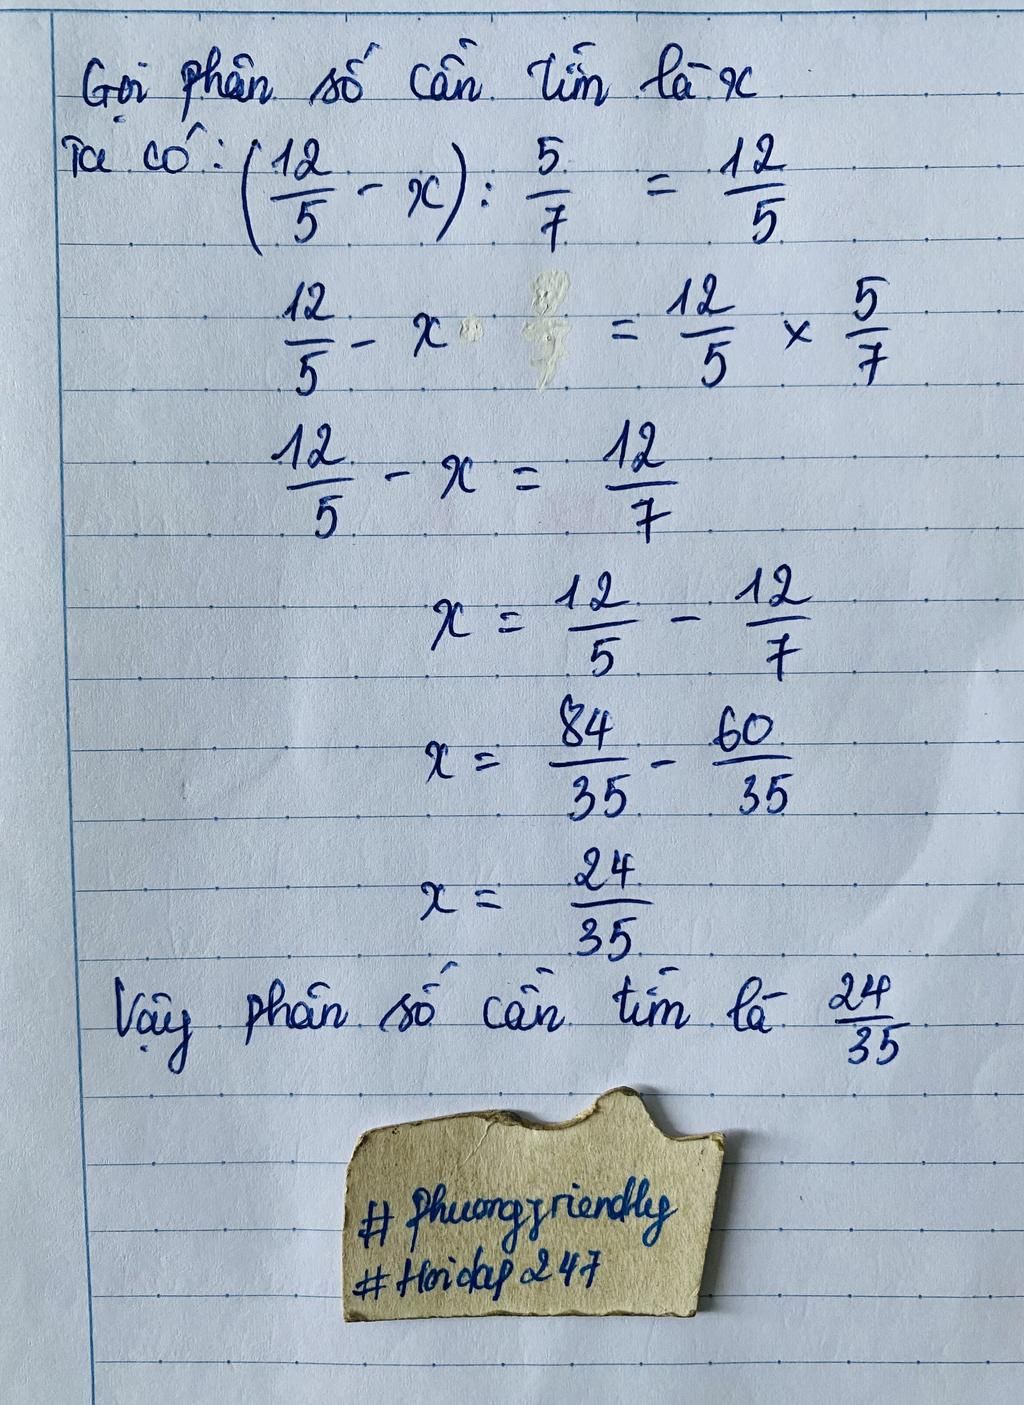 Gọi phân số cần tìm là x
Ta có: (12/5 - x) : 5/7 = 12/5
12/5 - x = 12/5 × 5/7
12/5 - x = 12/7
x = 12/5 - 12/7
x = 84/35 - 60/35
x = 24/35
Vậy phân số cần tìm là 24/35
# phuongfriendly
# Hoidap 247